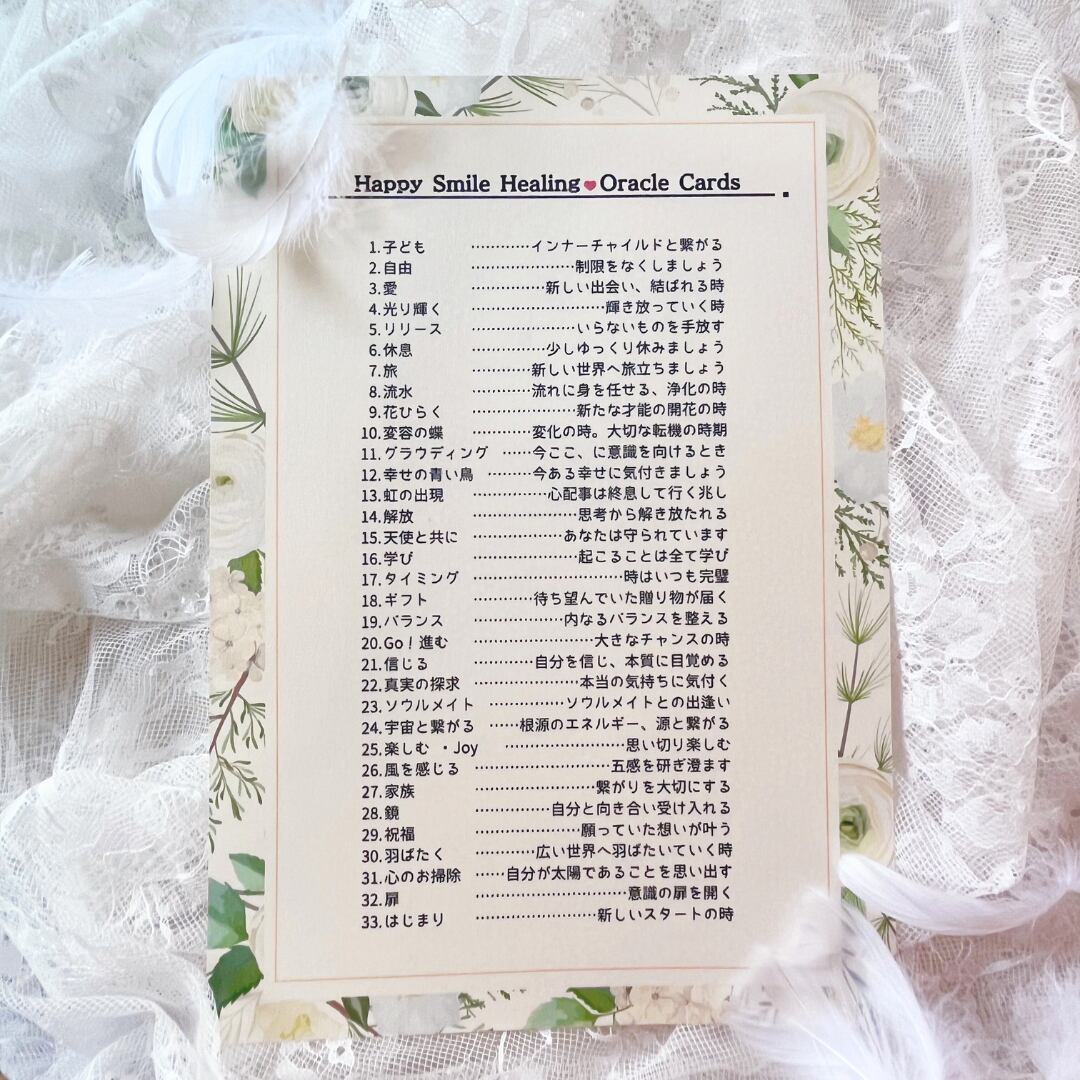 Happy Smile Healing♥Oracle Cards
1.子ども …………インナーチャイルドと繋がる
2.自由 …………………制限をなくしましょう
3.愛 ……………新しい出会い、結ばれる時
4.光り輝く ………………………輝き放っていく時
5.リリース …………………いらないものを手放す
6.休息 ……………少しゆっくり休みましょう
7.旅 …………新しい世界へ旅立ちましょう
8.流水 …………流れに身を任せる、浄化の時
9.花ひらく …………………新たな才能の開花の時
10.変容の蝶 …………変化の時。大切な転機の時期
11.グラウディング ……今ここ、に意識を向けるとき
12.幸せの青い鳥 ………今ある幸せに気付きましょう
13.虹の出現 ……………心配事は終息して行く兆し
14.解放 …………………思考から解き放たれる
15.天使と共に ………………あなたは守られています
16.学び …………………起こることは全て学び
17.タイミング …………………………時はいつも完璧
18.ギフト …………待ち望んでいた贈り物が届く
19.バランス ………………内なるバランスを整える
20.Go！進む ……………………大きなチャンスの時
21.信じる …………自分を信じ、本質に目覚める
22.真実の探求 …………………本当の気持ちに気付く
23.ソウルメイト ……………ソウルメイトとの出逢い
24.宇宙と繋がる ……根源のエネルギー、源と繋がる
25.楽しむ ・Joy ……………………思い切り楽しむ
26.風を感じる ………………………五感を研ぎ澄ます
27.家族 ……………………繋がりを大切にする
28.鏡 ……………自分と向き合い受け入れる
29.祝福 …………………願っていた想いが叶う
30.羽ばたく …………広い世界へ羽ばたいていく時
31.心のお掃除 ……自分が太陽であることを思い出す
32.扉 …………………………意識の扉を開く
33.はじまり ……………………新しいスタートの時